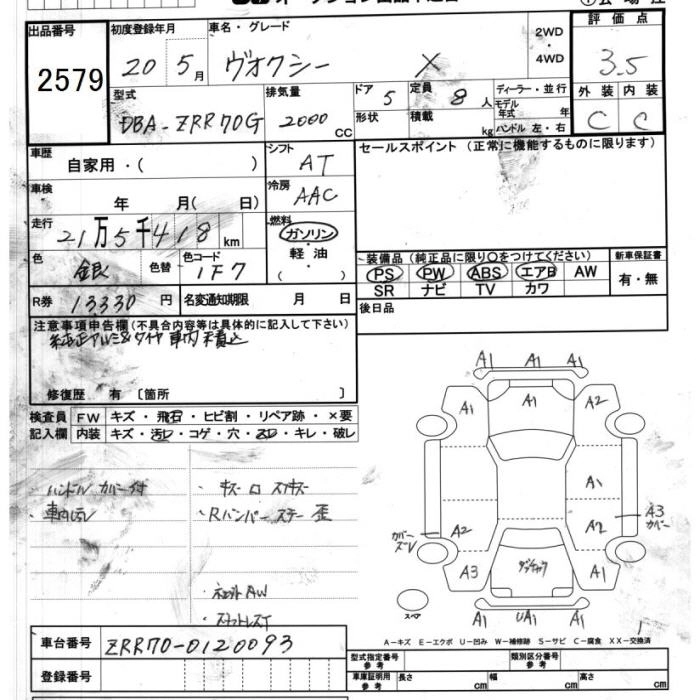 出品番号 初度登録年月 車名・グレード 2WD・4WD 評価点
2579 20 5月 ヴォクシー X 3.5
型式 排気量 ドア 5 定員 8人 ディーラー・並行 外装 内装
DBA-ZRR70G 2000 CC 形状 積載 kg モデル年式 年 ハンドル 左・右 C C
車歴 自家用・( ) シフト AT セールスポイント (正常に機能するものに限ります)
車検 年 月( 日) 冷房 AAC
走行 21万5千418km 燃料 ガソリン・軽油・( )
色 銀 色替 色コード 1F7 装備品 (純正品に限り〇をつけてください) 新車保証書
PS PW ABS エアB AW 有・無
SR ナビ TV カワ
R券 13330円 名変通知期限 月 日 後日品
注意事項申告欄 (不具合内容等は具体的に記入して下さい)
純正アルミ&タイヤ 車内積込
修復歴 有 〔箇所 〕
検査員 FW キズ・飛石・ヒビ割・リペア跡・×要
記入欄 内装 キズ・汚レ・コゲ・穴・スレ・キレ・破レ
・ハンドル カバー付 ・キズ ロ
・車内 ・Rバンパー ステー 歪
AW
A1 A1 A1
A1 A1 A2
A1
カバー A2 A2 A3 カバー
A3 A1
スペア A1 UA1 A1
A-キズ E-エクボ U-凹み W-補修跡 S-サビ C-腐食 XX-交換済
車台番号 ZRR70-0120093
型式指定番号 参考 類別区分番号 参考
登録番号 車庫証明用 参考 長さ cm 幅 cm 高さ cm